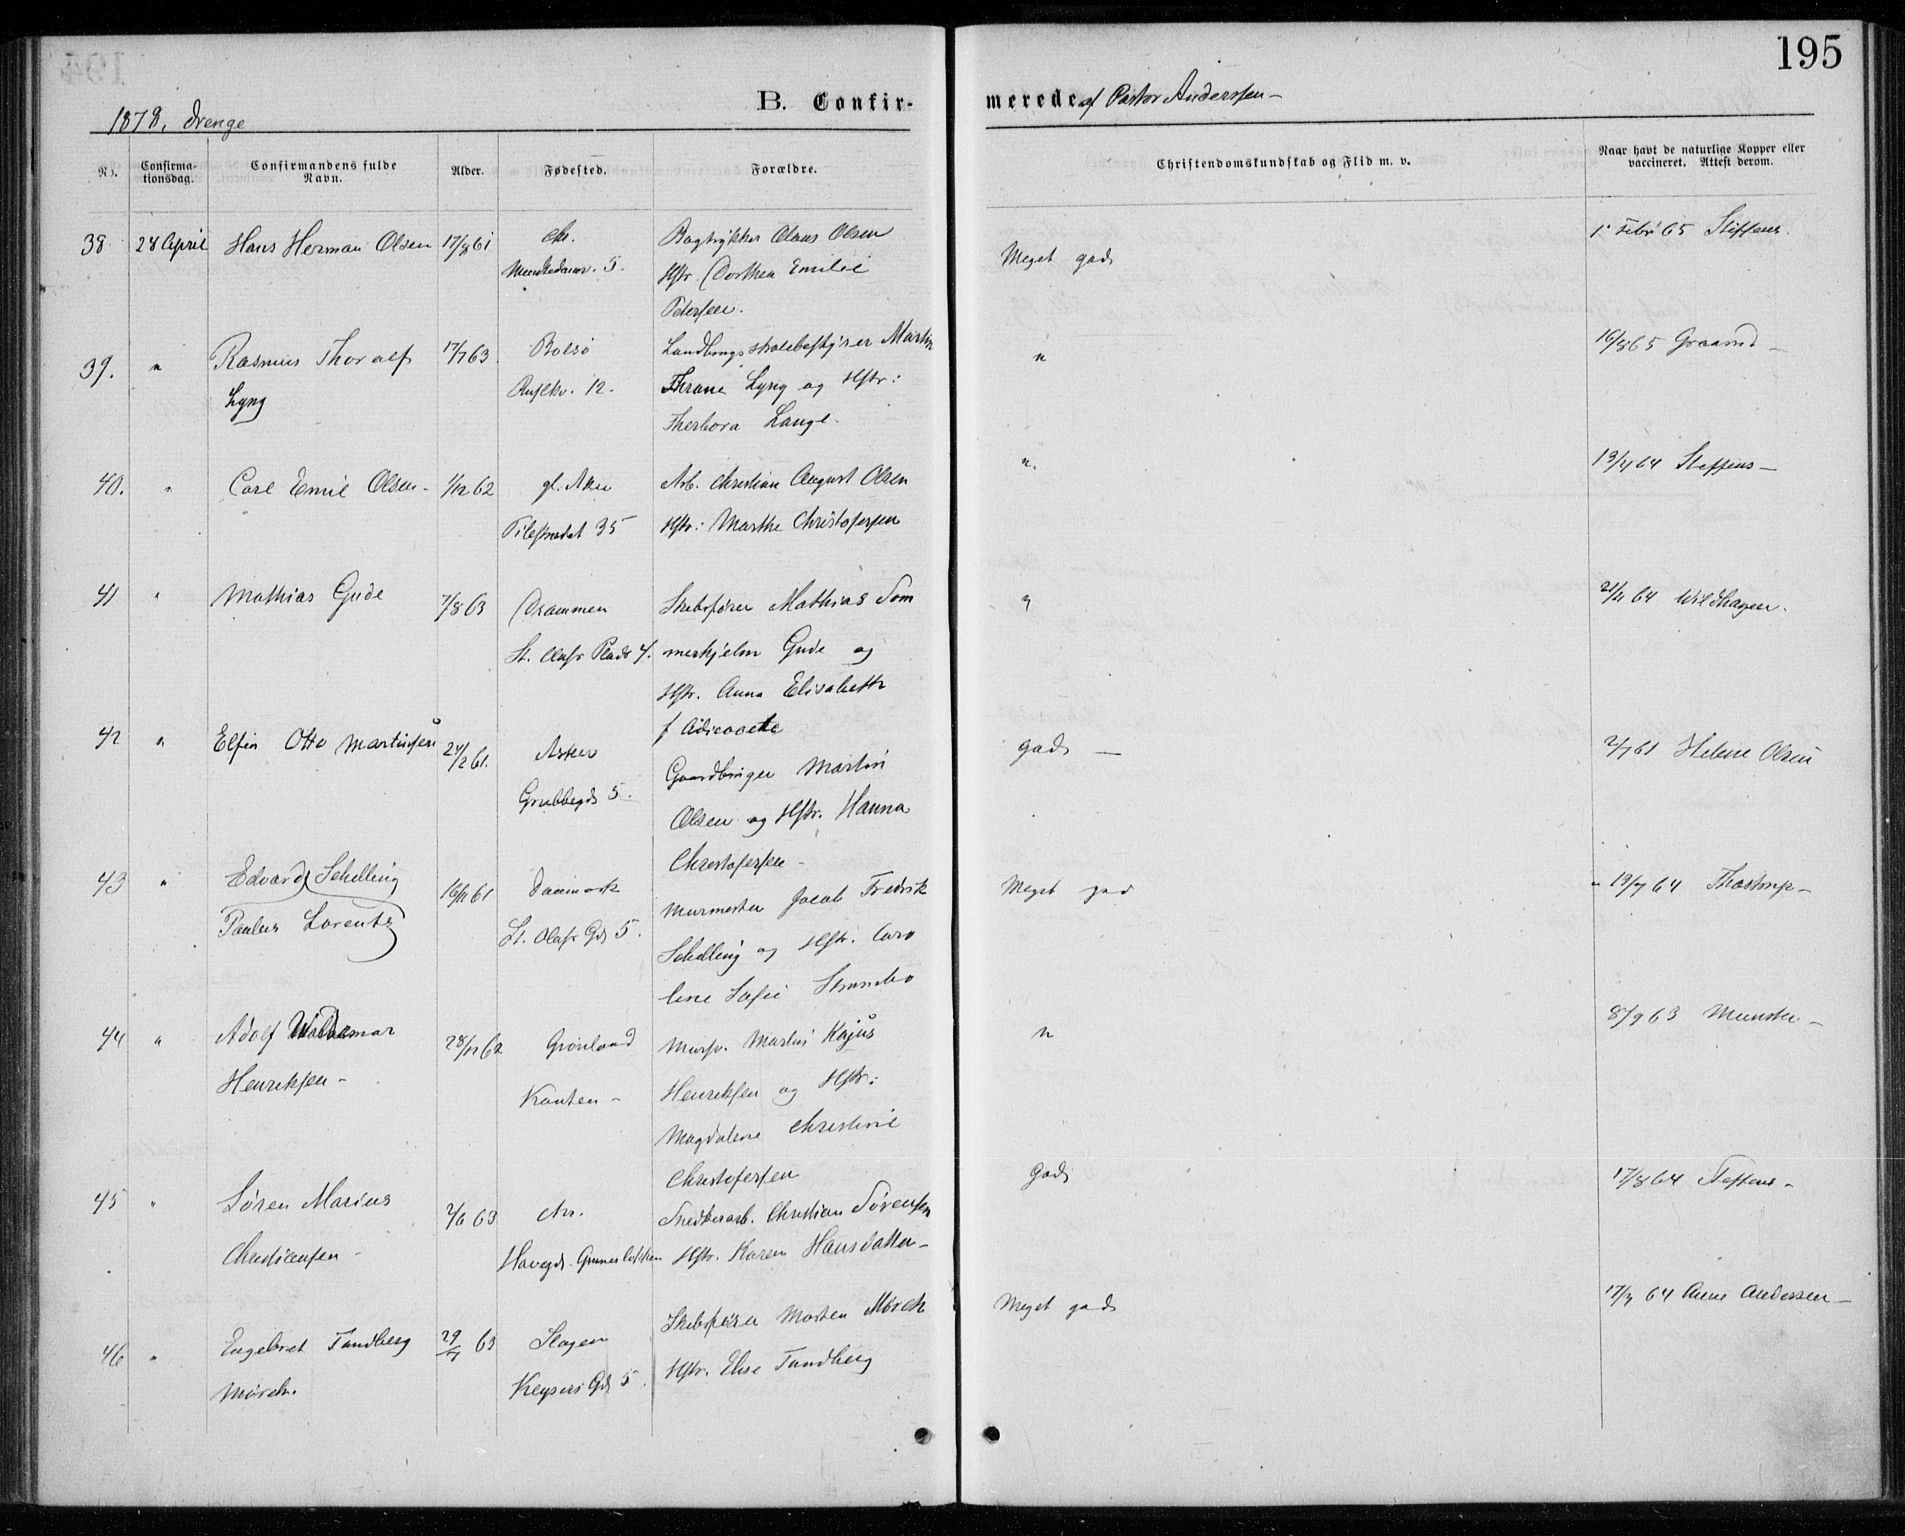 195
B. Confirmerede af Pastor Anderssen
1878, Drenge
No.
Confirmationsdag.
Confirmandens fulde Navn.
Alder.
Fødested.
Forældre.
Christendomskundskab og Flid m. v.
Naar havt de naturlige Kopper eller vaccineret. Attest derom.
38 28 April Hans Herman Olsen 17/8 61 Chr. Bogtrykker Olaus Olsen Meget god 65 Steffens.
5. Hstr. Dorthea Emilie
Petersen.
39. " Rasmus Thoralf 17/7 63 Bolsø Landbrugsskolebestyrer Martin " 16/8 65
Lyng 12. Thrane Lyng og Hstr:
Lange.
40. " Carl Emil Olsen- 1/12 62 gl. Aker Arb. Christian August Olsen ". 13/4 64 Steffens—
Pilestrædet 35 Hstr: Marthe Christofersen
41 " Mathias Gude 7/8 63 Drammen Skibsfører Mathias Som " 64 Wildhagen.
St. Olafs Plads 4. merhjelm Gude og
Hstr. Anna Elisabeth
42 " Otto Martinsen 24/2 61. Asker god — 2/7 61 Helene Olsen
Grubbegd 5. Gaardbruger Martin
Olsen og Hstr. Hanna
Christofersen-
43 " Edvard Schelling 16/11 61 Danmark Murmester Jacob Fredrik Meget god 19/7 64 Thostrup-
Paulus Lorentz St. Olafs Gd 5. Schelling og Hstr. Caro
line Sofie
44 " Adolf Waldemar 28/12 62 Grønland Martin Kajus " 8/9 63 Munster-
Henriksen- Kanten- Henriksen og Hstr:
Magdalene Christine
Christofersen
45 " Søren Marius 2/6 63 Chr. Snedkerarb. Christian Sørensen god 17/8 64 Steffens-
Christiansen- Havegd. Gruneløkken Hstr. Karen Hansdatter-
46 " Engebret Tandberg 29/7 63 Slagen Skibsfører Morten Mørch Meget god 17/7 64 Anne Andersen—
Mørch. Keysers Gd 5. Hstr. Elise Tandberg